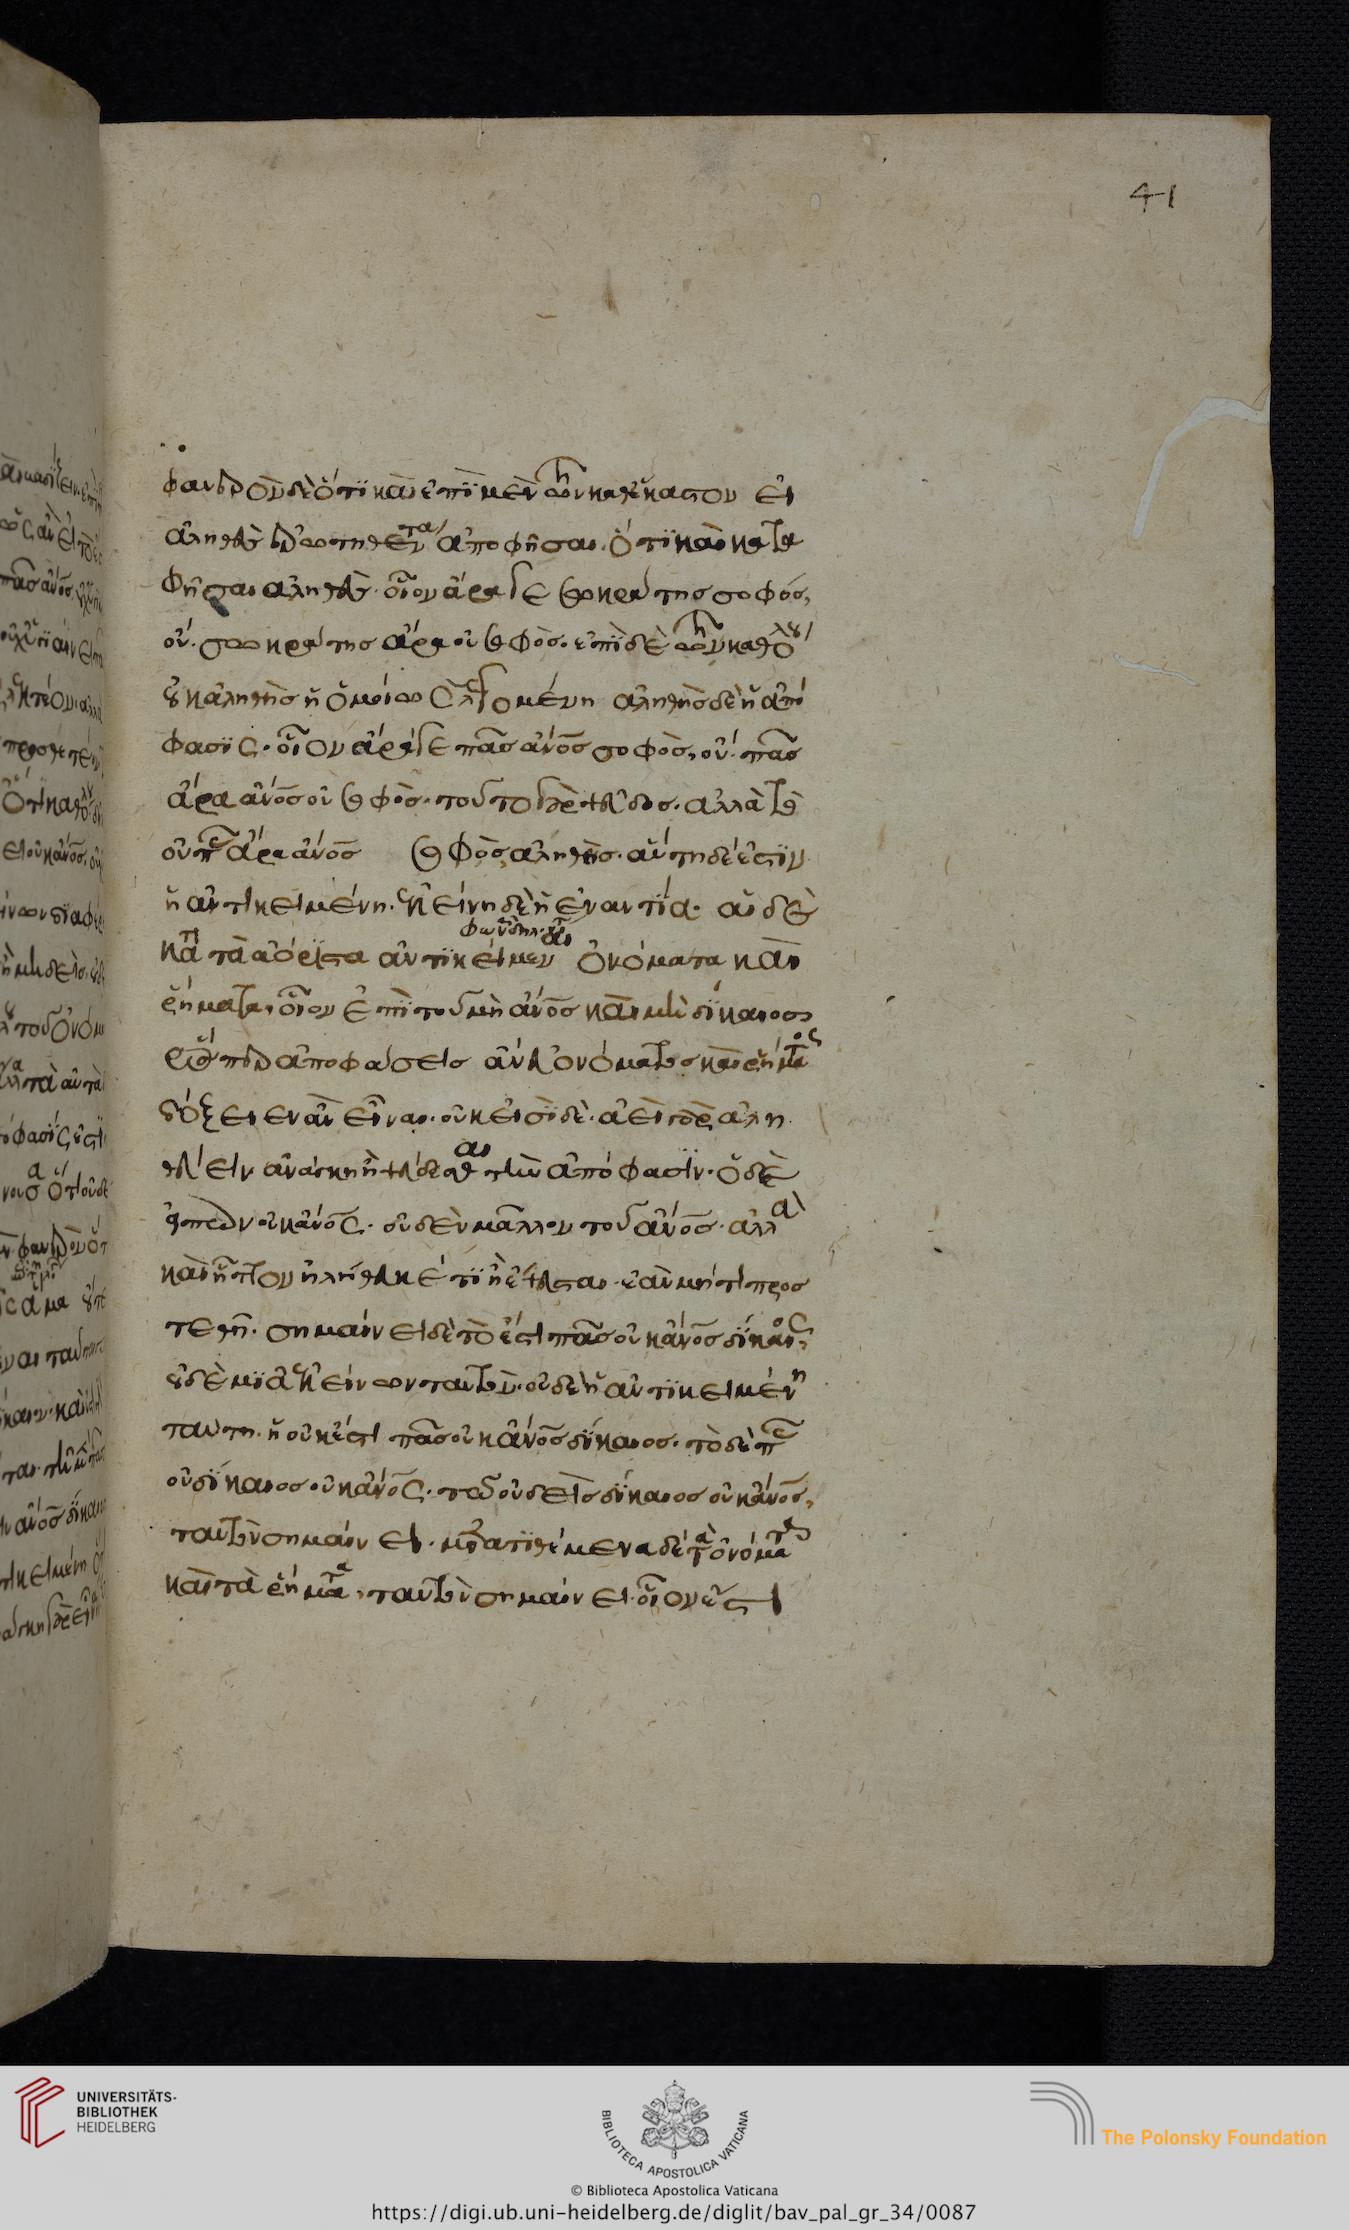 41
φανερὸν δὲ ὅτι καὶ ἐπὶ μὲν τῶν καθέκαστον εἰ
ἀληθὲς ἐρωτηθέντα ἀποφῆσαι. ὅτι καὶ κατα
φῆσαι ἀληθές. οἷον ἆρά γε σωκράτης σοφός,
οὔ. σωκράτης ἄρα οὐ σοφὸς. ἐπὶ δὲ τῶν καθόλου
οὐκ ἀληθὴς ἡ ὁμοίως λεγομένη ἀληθὴς δὲ ἡ ἀπό
φασις. οἷον ἆρά γε πᾶς ἄνος σοφὸς, οὔ. πᾶς
ἄρα ἄνος οὐ σοφὸς. τοῦτο γὰρ ψεῦδος. ἀλλὰ τὸ
οὐ πᾶς ἄρα ἄνος σοφὸς ἀληθὴς. αὕτη δέ ἐστιν
ἡ ἀντικειμένη. ἐκείνη δὲ ἡ ἐναντία. αἱ δὲ
κατὰ τὰ ἀόριστα ἀντικείμεναι ὀνόματα καὶ
ῥήματα, οἷον ἐπὶ τοῦ μὴ ἄνος καὶ μὴ δίκαιος
ὥσπερ ἀποφάσεις ἄνευ ὀνόματος καὶ ῥήματος
δόξειεν ἂν εἶναι. οὐκ εἰσὶ δὲ. ἀεὶ γὰρ ἀλη
θεύειν ἀνάγκη ἢ ψεύδεσθαι τὴν ἀπόφασιν. ὁ δὲ
εἰπὼν οὐκ ἄνος. οὐδὲν μᾶλλον τοῦ ἄνος. ἀλλὰ
καὶ ἧττον ἠλήθευκέ τι ἢ ἔψευσται. ἐὰν μή τι προς
τεθῇ. σημαίνει δὲ τὸ ἔστι πᾶς οὐκ ἄνος δίκαιος,
οὐδεμιᾷ ἐκείνων ταυτὸν. οὐδὲ ἡ ἀντικειμένη
ταύτη. ἡ οὐκ ἔστι πᾶς οὐκ ἄνος δίκαιος. τὸ δὲ πᾶς
οὐ δίκαιος οὐκ ἄνος. τῶ οὐδεὶς δίκαιος οὐκ ἄνος,
ταυτὸν σημαίνει. μετατιθέμενα δὲ τὰ ὀνόματα
καὶ τὰ ῥήματα, ταυτὸν σημαίνει. οἷον ἔστι
UNIVERSITÄTS-
BIBLIOTHEK
HEIDELBERG
BIBLIOTECA APOSTOLICA VATICANA
The Polonsky Foundation
© Biblioteca Apostolica Vaticana
https://digi.ub.uni-heidelberg.de/diglit/bav_pal_gr_34/0087